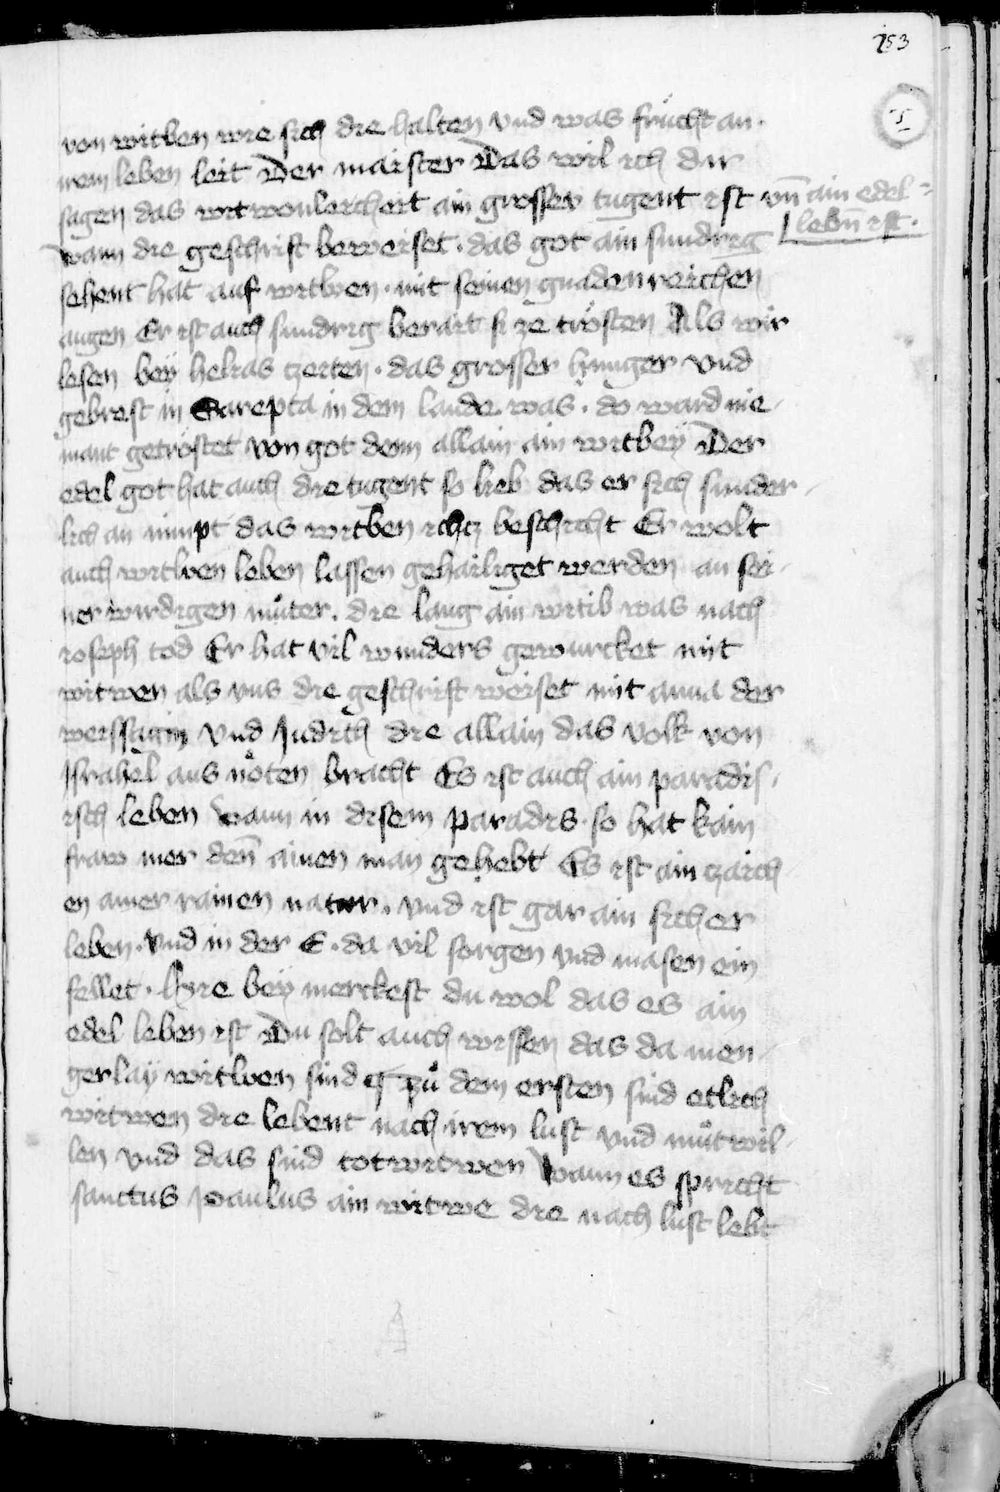 253
von witben wie sich die halten vnd was frücht an
irem leben leit Der maister Das wil ich dir
sagen das witwenleichait ain grosser tugent ist vn̄ ain edel
lebn̄ ist.
Wann die geschrift beweiset. das got ain sundrig
sehent hat auf witwen. mit seinen gnadenreichen
augen Er ist auch sundrig berait si ze trösten Als wir
lesen bey helias zeiten. das grosser hunger vnd
gebrest in Sarepta in dem lande was. do ward nie
mant getröstet von got denn allain ain witbey Der
edel got hat auch die tugent so lieb das er sich sunder
lich an nimpt das witben ichtz beschicht Er wolt
auch witwen leben lassen gehailiget werden an sei
ner wirdigen mů̊ter. die lang ain witib was nach
ioseph tod Er hat vil wunders gewurcket mit
witwen als vns die geschrift weiset mit anna der
weissagin vnd Judith die allain das volk von
Israhel aus nöten bracht Es ist auch ain paradis
isch leben Wann in disem paradis. so hat kain
fraw mer den̄ ainen man gehebt Es ist ain zaich
en ainer rainen natur. vnd ist gar ain sicher
leben. vnd in der E. da vil sorgen vnd masen ein
fellet. Hyre bey merckest du wol das es ain
edel leben ist Du solt auch wissen das da men
gerlay witwen sind ¶ zů dem ersten sind etlich
witwen die lebent nach irem lust vnd můtwil
len vnd das sind totwitwen Wann es spricht
sanctus Paulus ain witwe die nach lust lebt